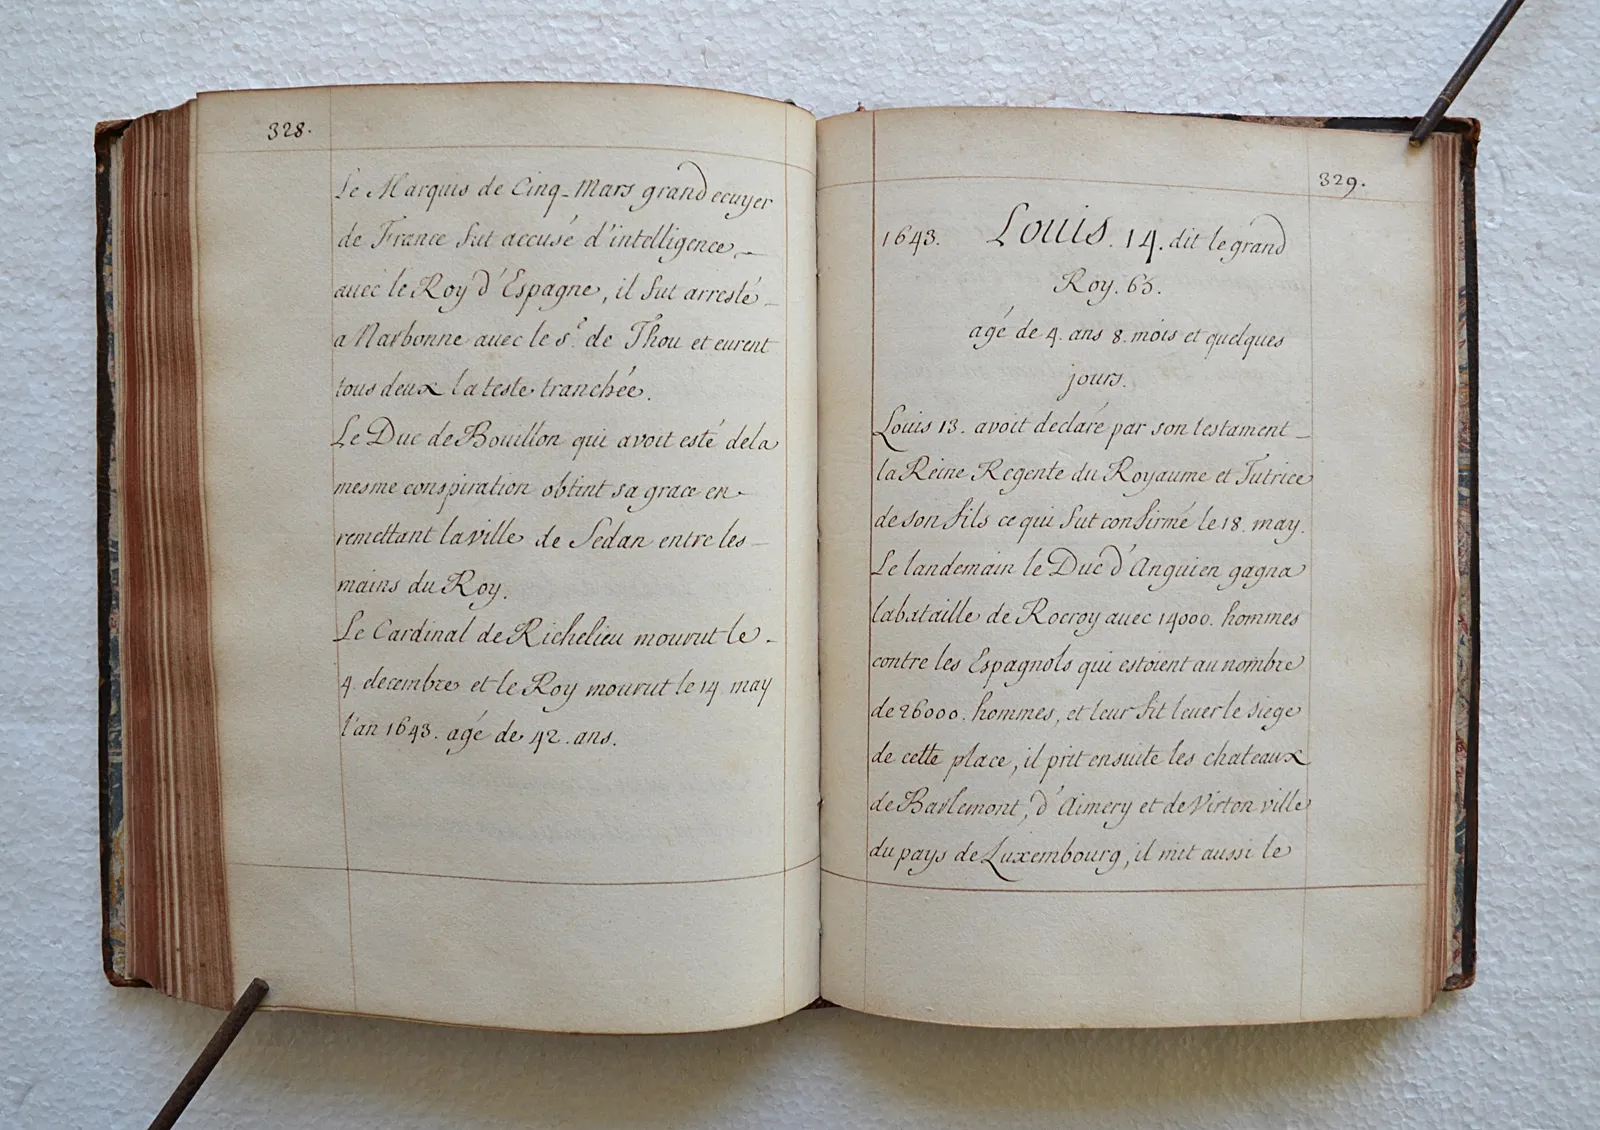 328.
Le Marquis de Cinq-Mars grand ecuyer
de France fut accusé d'intelligence
avec le Roy d'Espagne, il fut arresté
a Narbonne avec le Sr. de Thou et eurent
tous deux la teste tranchée.
Le Duc de Bouillon qui avoit esté dela
mesme conspiration obtint sa grace en
remettant la ville de Sedan entre les
mains du Roy.
Le Cardinal de Richelieu mourut le
4. decembre et le Roy mourut le 14 may
l'an 1643. agé de 42. ans.
329.
1643. Louis. 14. dit le grand
Roy. 65.
agé de 4. ans 8. mois et quelques
jours.
Louis 13. avoit declaré par son testament
la Reine Regente du Royaume et Tutrice
de son fils ce qui fut confirmé le 18. may.
Le landemain le Duc d'Anguien gagna
la bataille de Rocroy avec 14000. hommes
contre les Espagnols qui estoient au nombre
de 26000. hommes, et leur fit lever le siege
de cette place, il prit ensuite les chateaux
de Barlemont, d'Aimery et de Virton ville
du pays de Luxembourg, il mit aussi le